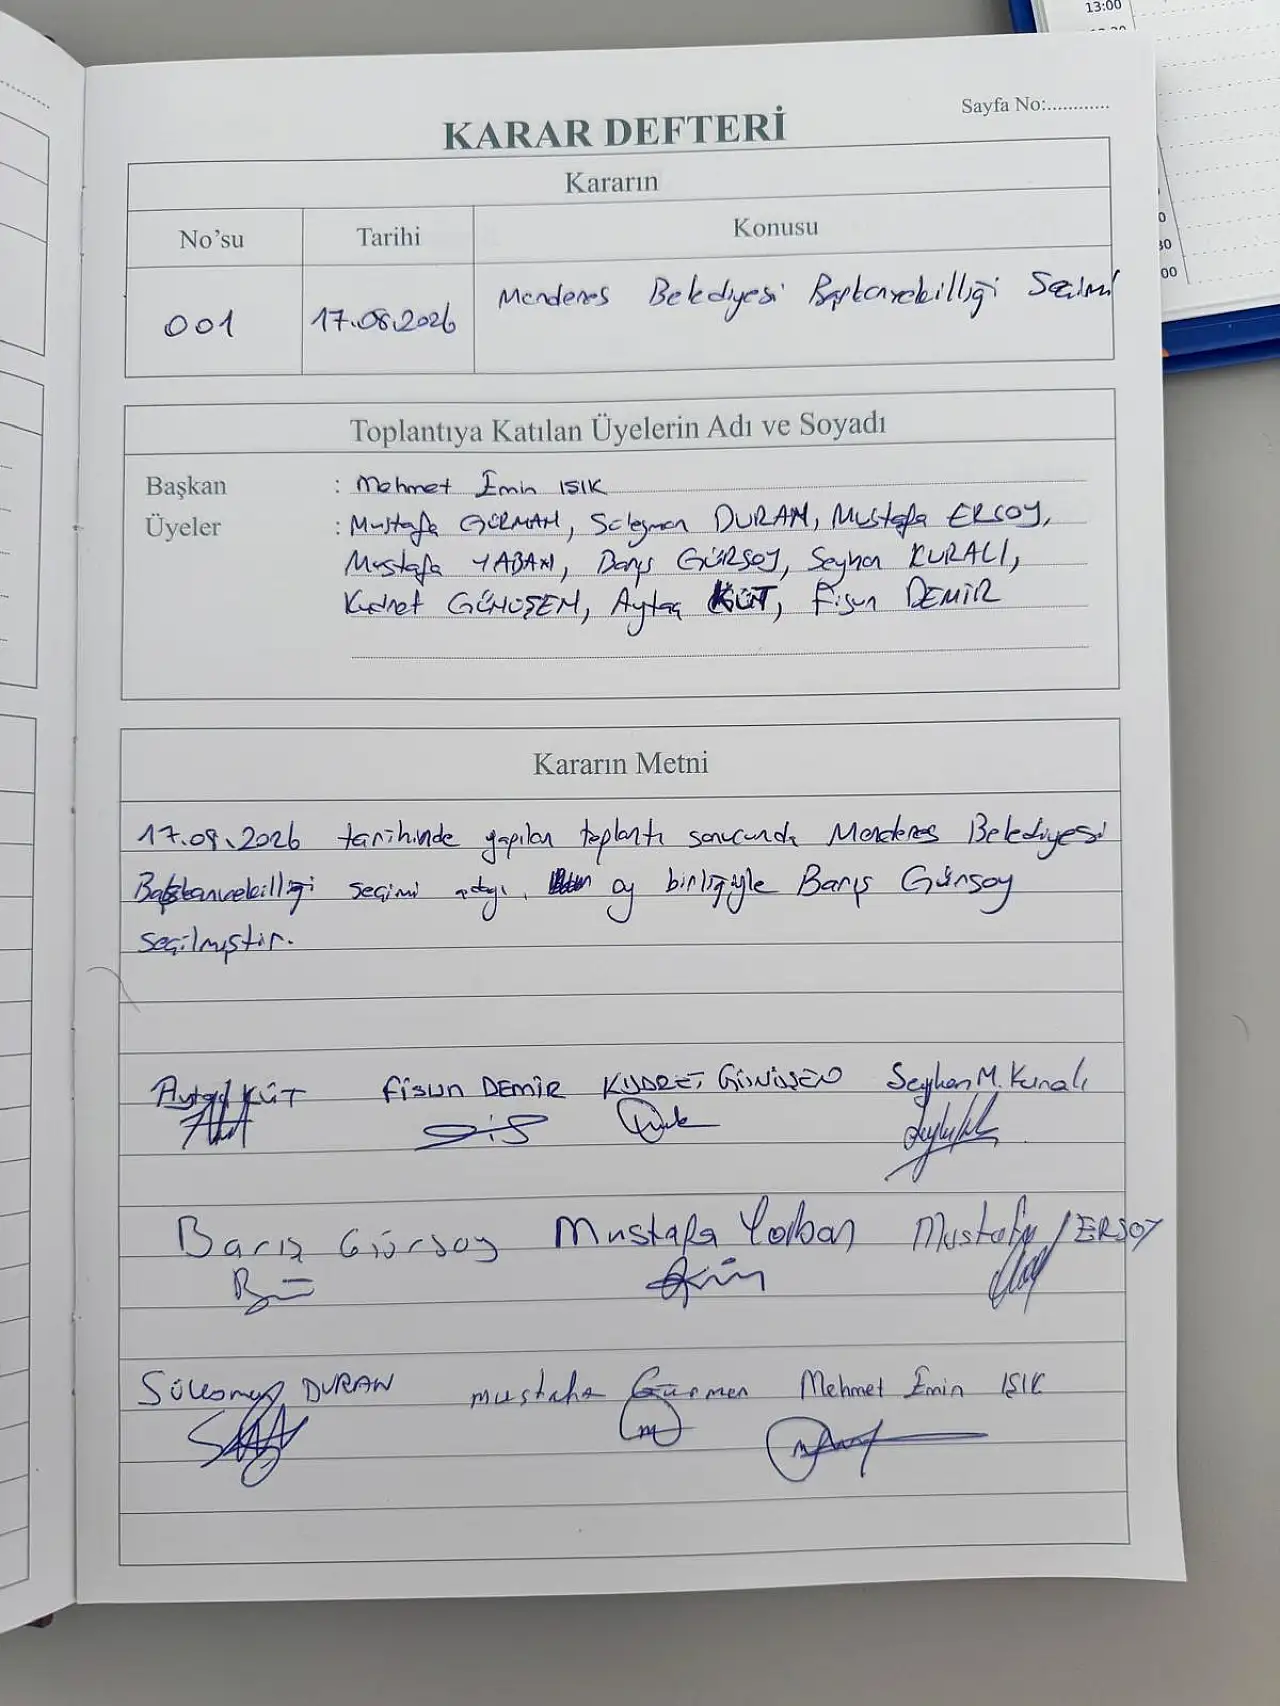 13:00
Sayfa No:............
KARAR DEFTERİ
Kararın
No'su Tarihi Konusu
001 17.08.2026 Menderes Belediyesi Başkanvekilliği Seçimi
Toplantıya Katılan Üyelerin Adı ve Soyadı
Başkan : Mehmet Emin IŞIK
Üyeler : Mustafa GÜRMAN, Süleyman DURAN, Mustafa ERSOY,
Mustafa YABAN, Barış GÜRSOY, Seyhan KURALI,
Kudret GÜNÜŞEN, Aytaç KÜT, Fisun DEMİR
Kararın Metni
17.08.2026 tarihinde yapılan toplantı sonucunda Menderes Belediyesi
Başkanvekilliği seçimi adayı, oy birliğiyle Barış Gürsoy
seçilmiştir.
Aytaç KÜT Fisun DEMİR KUDRET GÜNÜŞEN Seyhan M. Kuralı
Barış Gürsoy Mustafa Yaban Mustafa ERSOY
Süleyman DURAN mustafa Gürmen Mehmet Emin IŞIK